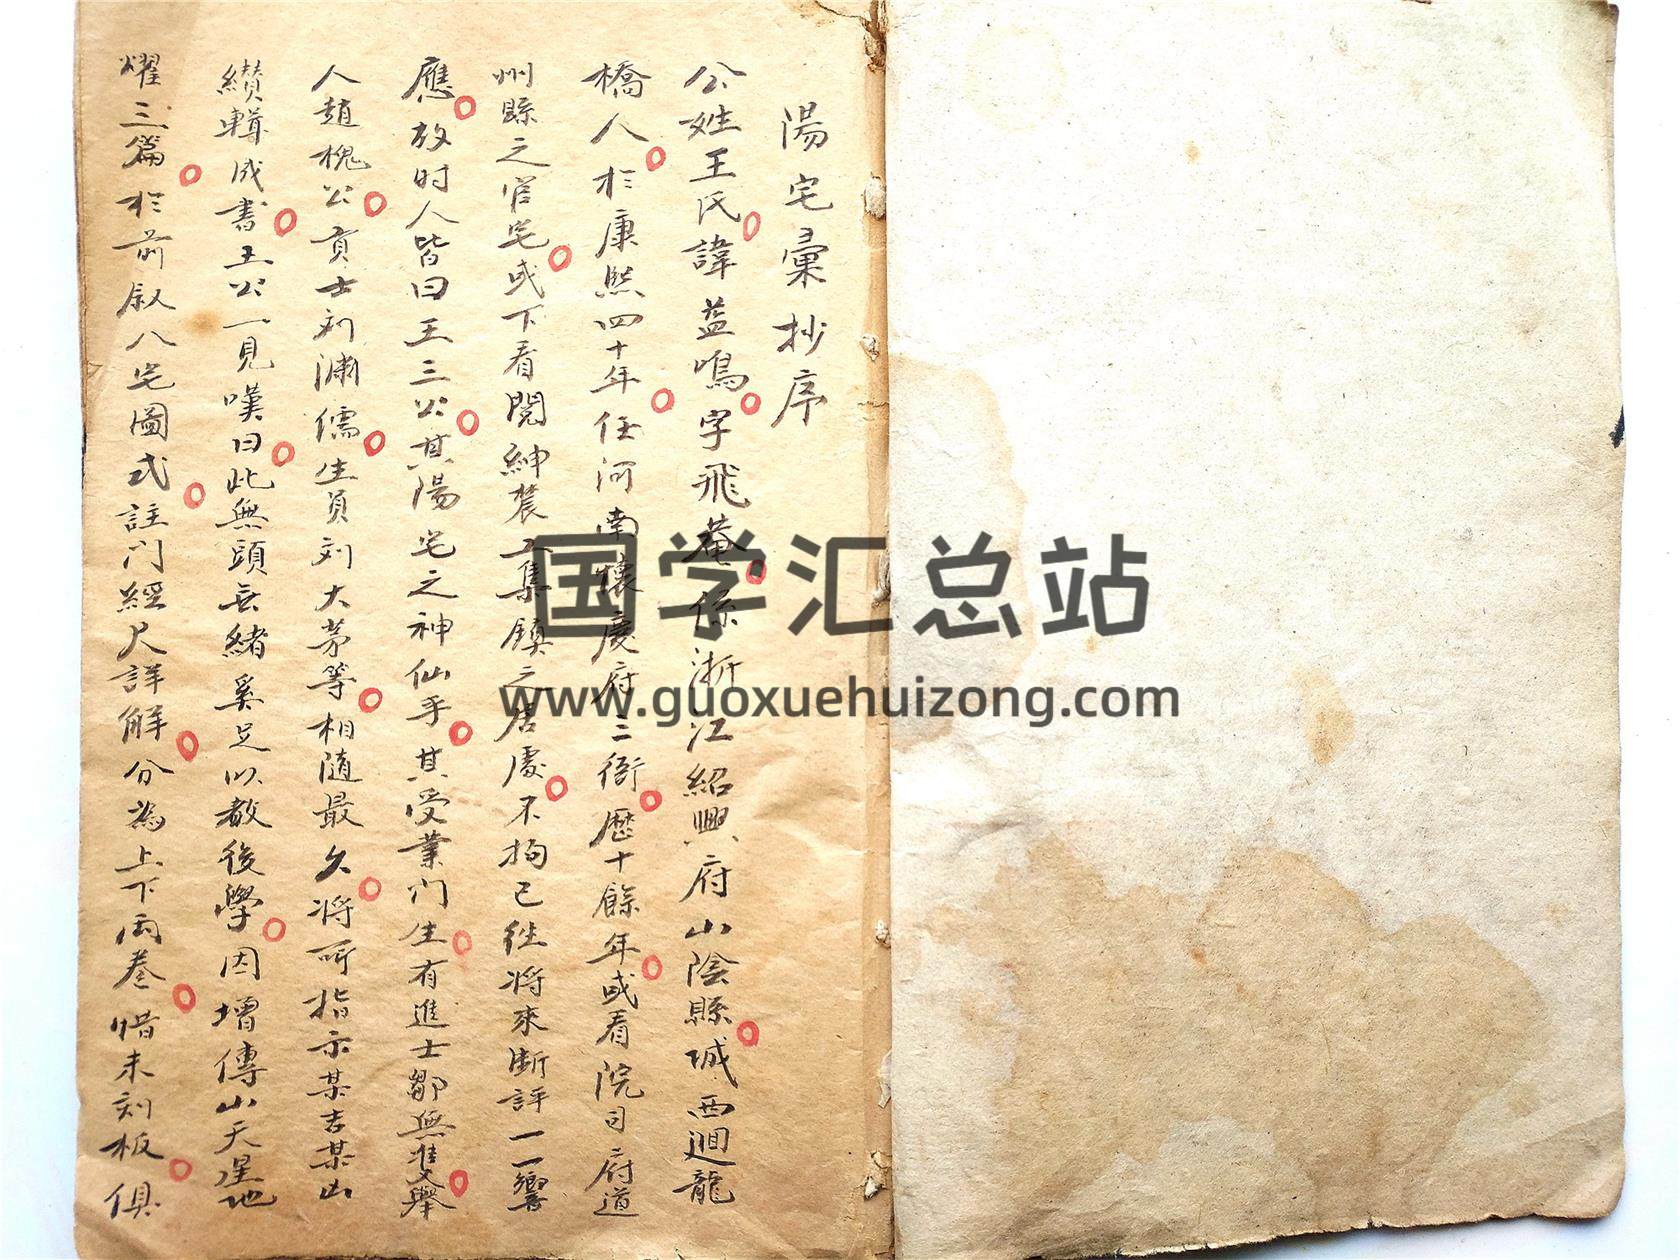 陽宅彙抄序
公姓王氏諱益鳴字飛菴係浙江紹興府山陰縣城西迴龍
橋人於康熙四十年任河南懷慶府三衙歷十餘年或看院司府道
州縣之官宅或下看閱紳農工集鎮之居處不拘已往將來斷評一一響
應故时人皆曰王三公其陽宅之神仙乎其受業門生有進士鄒無雙文舉
人趙槐公貢士刘潚儒生員刘大茅等相随最久将所指示某吉某凶
纘輯成書王公一見嘆曰此無頭無緒奚足以教後學因增傳山天星地
耀三篇於前叙八宅圖式註门經尺詳解分為上下兩卷惜未刻板俱
国学汇总站
www.guoxuehuizong.com